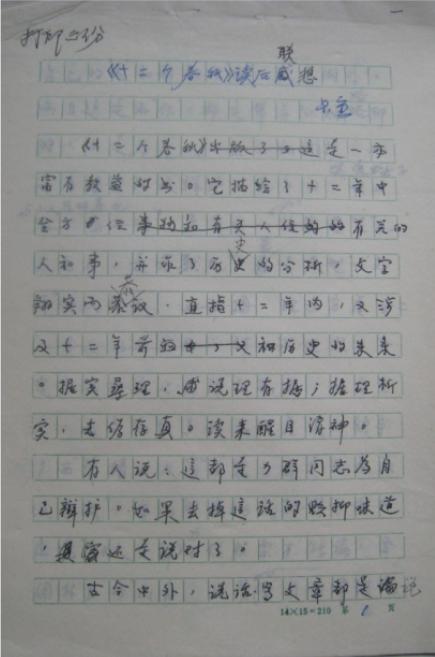 打印＿份
《十二个春秋》读后联想
《十二个春秋》出版了，这是一本
富有教益的书。它描绘了十二年中
全方＿位事物和有关人位的的有关的
人和事，并作了历史的分析，文字
翔实而＿议，直指十二年内，又涉
及十二年前的＿＿又和历史的未来
。据实寻理，使说理有据；据理析
实，去伪存真。读来醒目清神。
有人说：这都是力群同志为自
己辩护。如果去掉这话的贬抑味道
，其实还是说对了。
古今中外，说话写文章都是论说
14×15=210 第 1 页